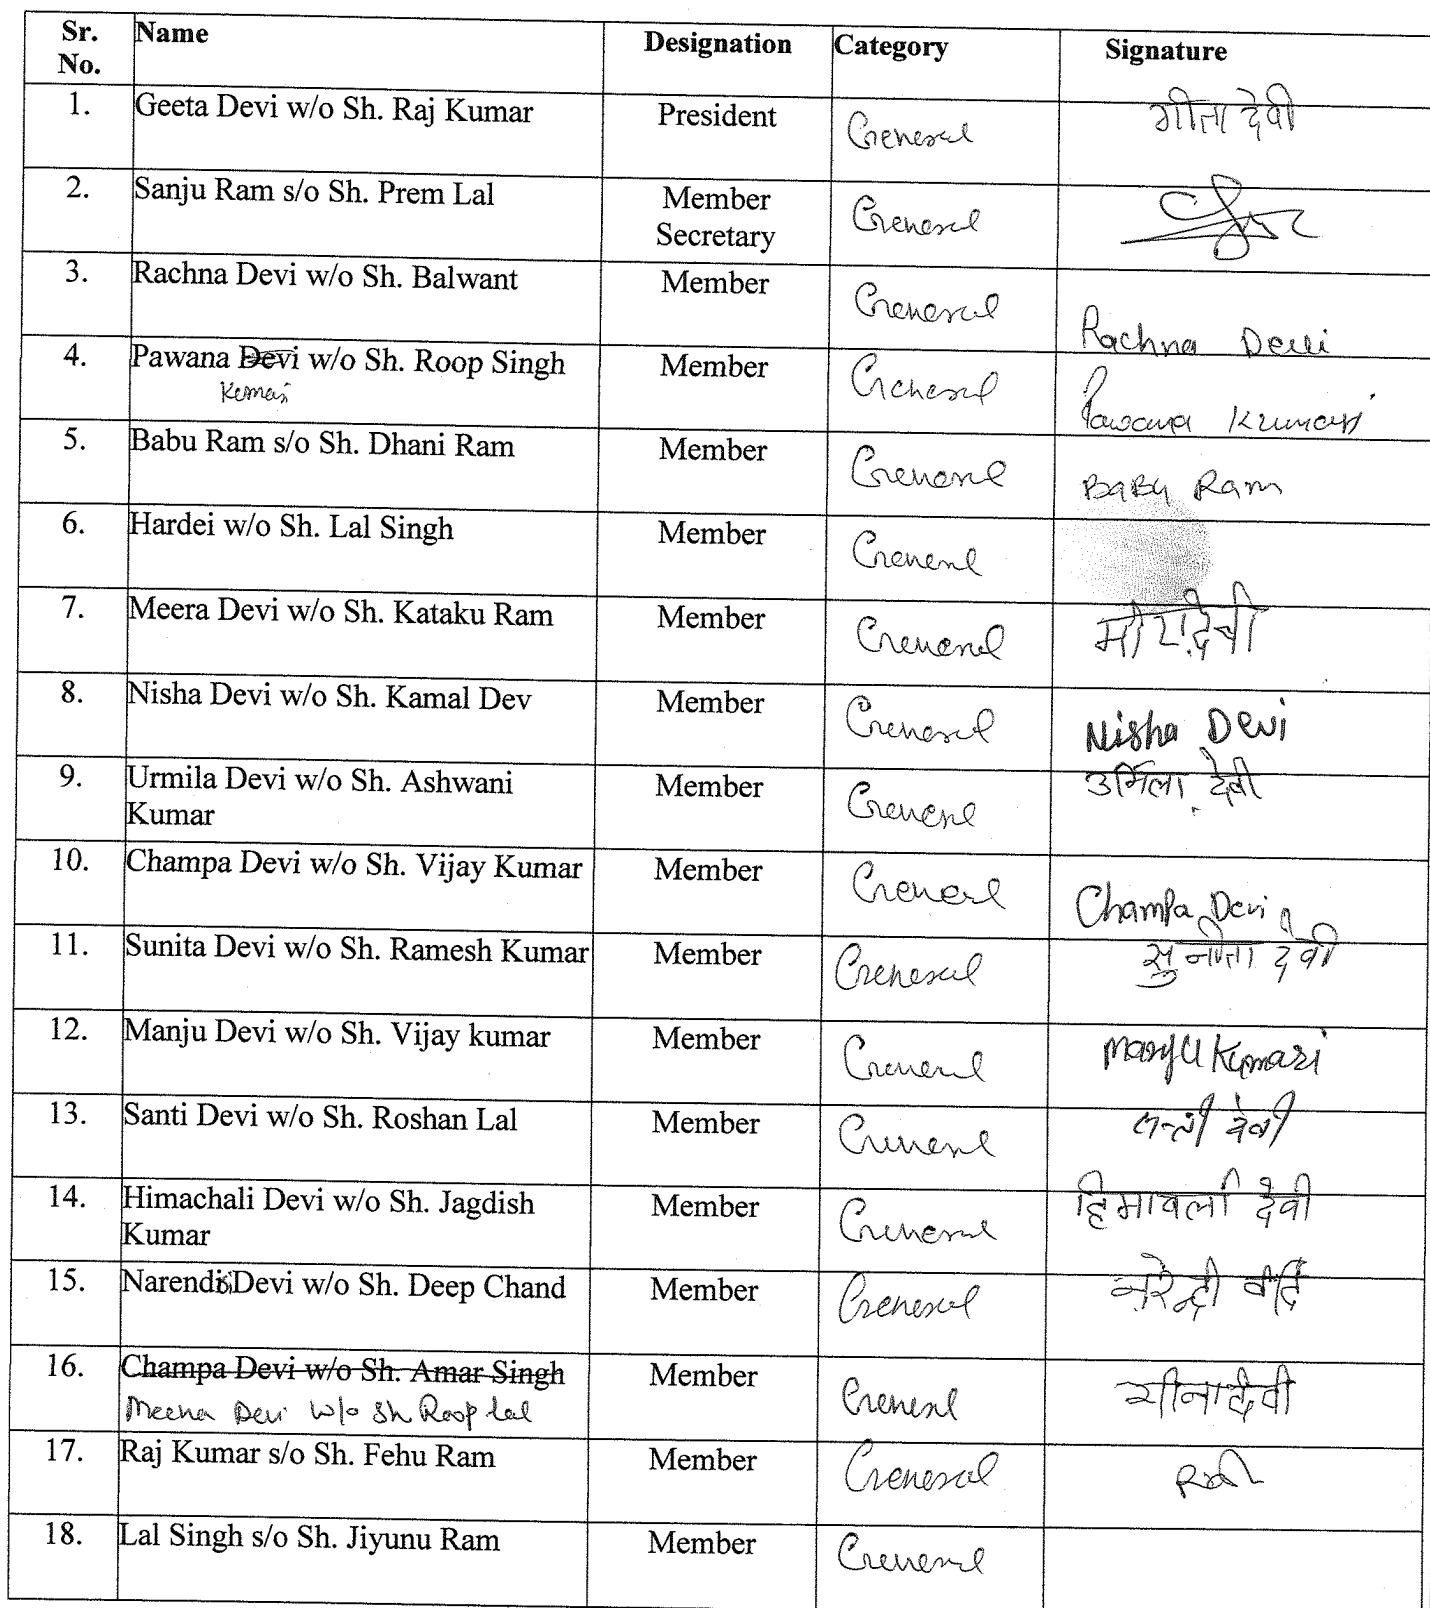 Sr. No. Name Designation Category Signature
1. Geeta Devi w/o Sh. Raj Kumar President General गीता देवी
2. Sanju Ram s/o Sh. Prem Lal Member Secretary General
3. Rachna Devi w/o Sh. Balwant Member General Rachna Devi
4. Pawana Devi w/o Sh. Roop Singh Member General Pawana Kumari
Kumari
5. Babu Ram s/o Sh. Dhani Ram Member General BaBu Ram
6. Hardei w/o Sh. Lal Singh Member General
7. Meera Devi w/o Sh. Kataku Ram Member General मीरा देवी
8. Nisha Devi w/o Sh. Kamal Dev Member General Nisha Devi
9. Urmila Devi w/o Sh. Ashwani Member General उर्मिला देवी
Kumar
10. Champa Devi w/o Sh. Vijay Kumar Member General Champa Devi
11. Sunita Devi w/o Sh. Ramesh Kumar Member General सुनीता देवी
12. Manju Devi w/o Sh. Vijay kumar Member General Manju Kumari
13. Santi Devi w/o Sh. Roshan Lal Member General देवी
14. Himachali Devi w/o Sh. Jagdish Member General हिमाचली देवी
Kumar
15. Narendi Devi w/o Sh. Deep Chand Member General नरेन्द्री
16. Champa Devi w/o Sh. Amar Singh Member General मीना देवी
Meena Devi w/o Sh Roop lal
17. Raj Kumar s/o Sh. Fehu Ram Member General
18. Lal Singh s/o Sh. Jiyunu Ram Member General